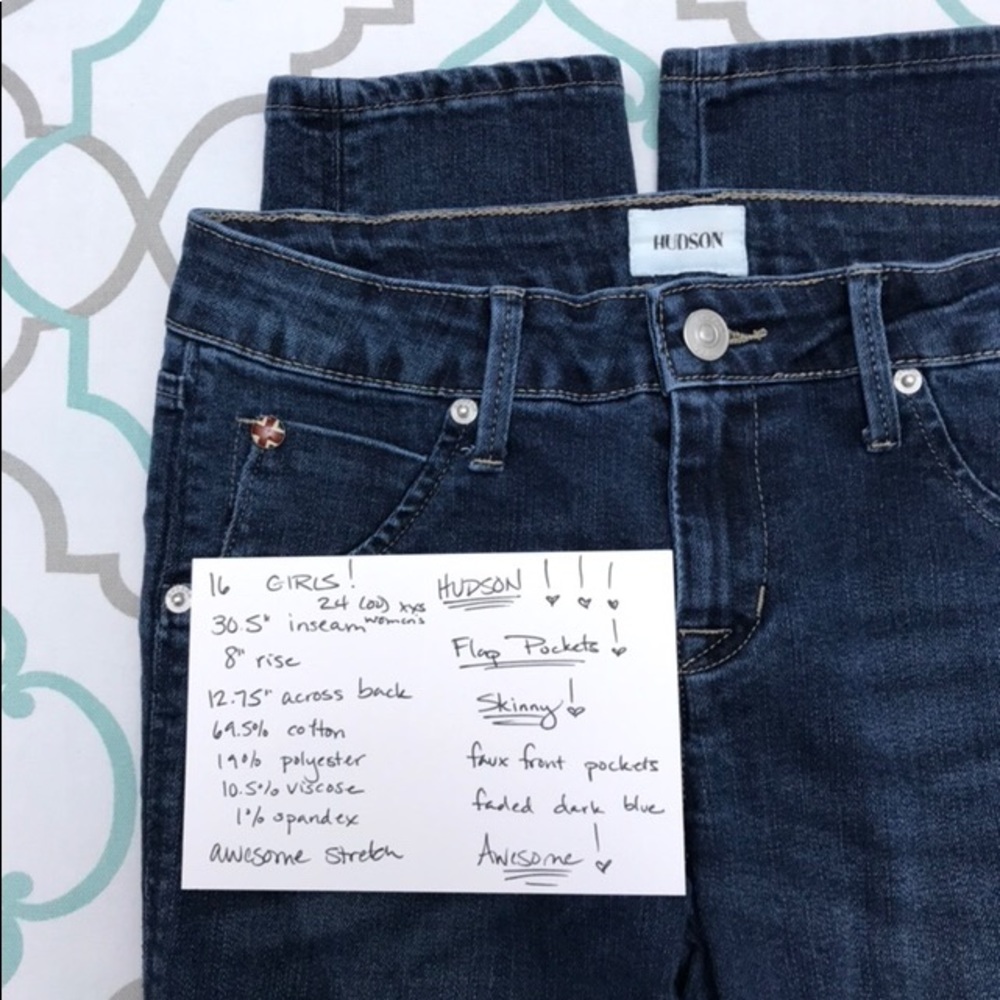 HUDSON
16 GIRLS!
24 (00) xxs
women's
30.5" inseam
8" rise
12.75" across back
69.5% cotton
19% polyester
10.5% viscose
1% spandex
awesome stretch
HUDSON !!!
Flap Pockets!
Skinny!
faux front pockets
faded dark blue
Awesome!